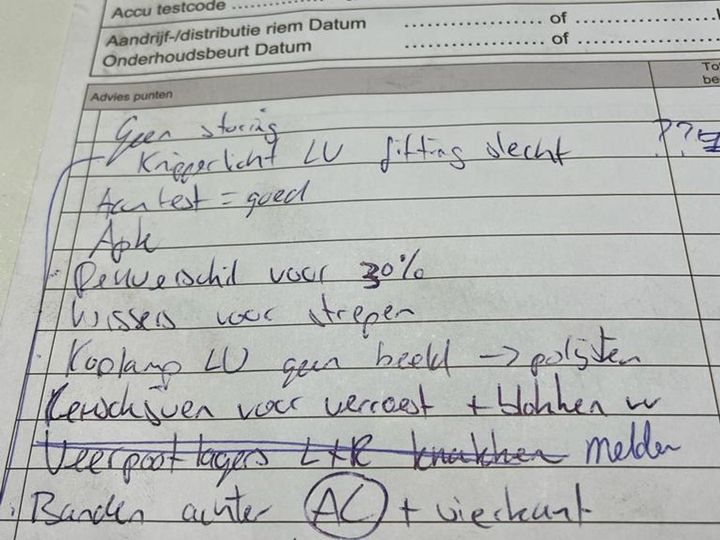 Accu testcode ..................
Aandrijf-/distributie riem Datum .................... of ....................
Onderhoudsbeurt Datum .................... of ....................
Advies punten
To
be
Geen storing
Knipperlicht LV fitting slecht ???
Accutest = goed
Apk
Remverschil voor 30%
Wissers voor strepen
Koplamp LV geen beeld → polijsten
Remschijven voor verroest + blokken
Veerpootlagers L+R knakken melden
Banden achter AC + vierkant